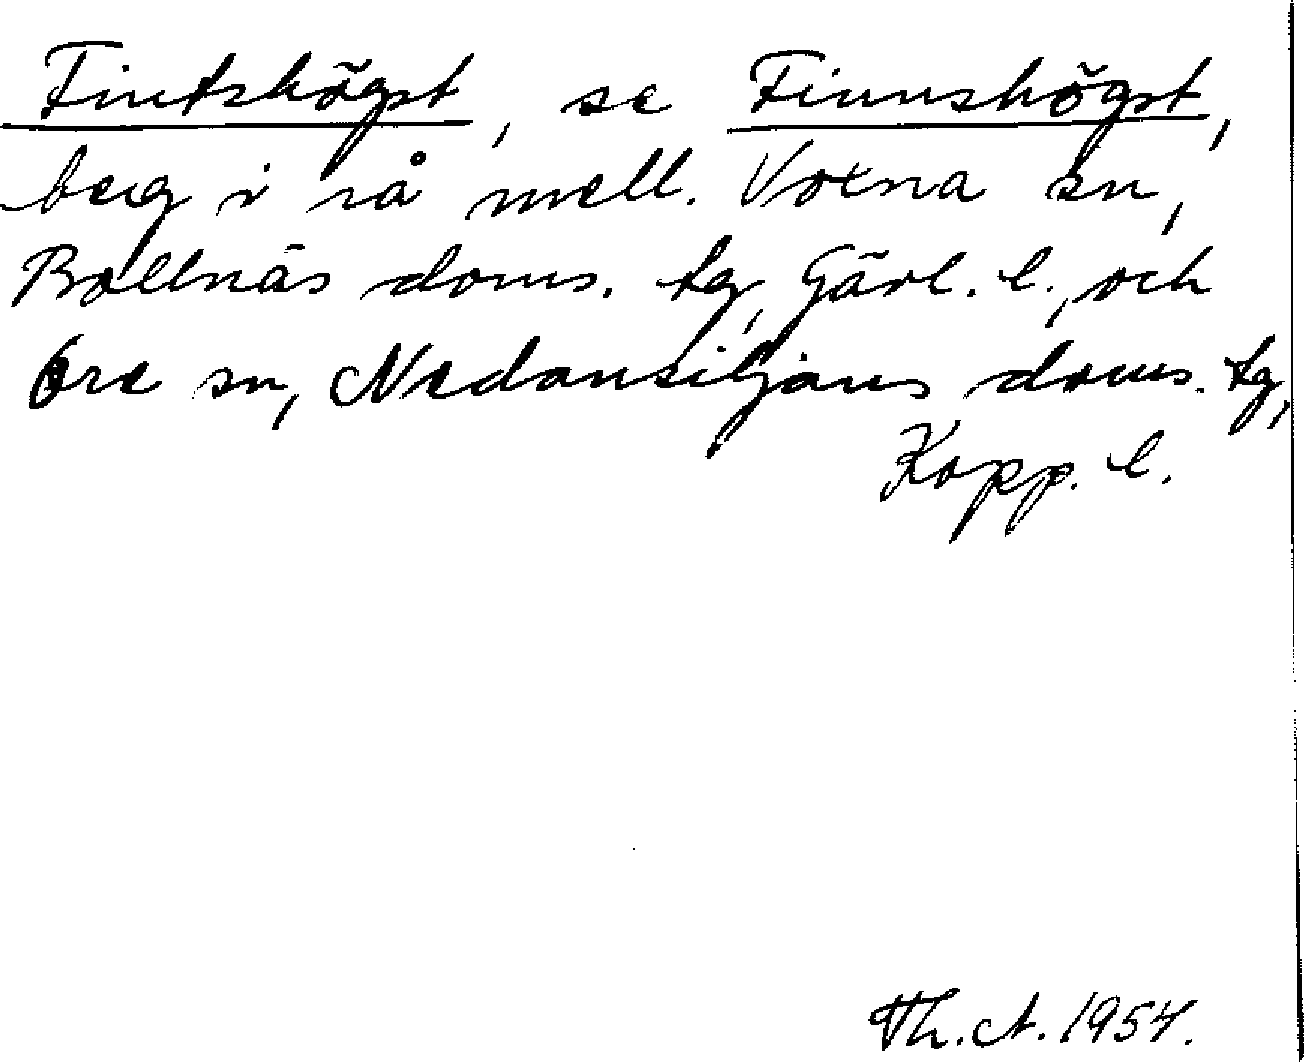 Fintshögst, se Finnshögst,
berg i rå mell. Voxna sn,
Bollnäs doms. tg, Gävl. l., och
Ore sn, Nedansiljans doms. tg,
Kopp. l.
Th. A. 1954.